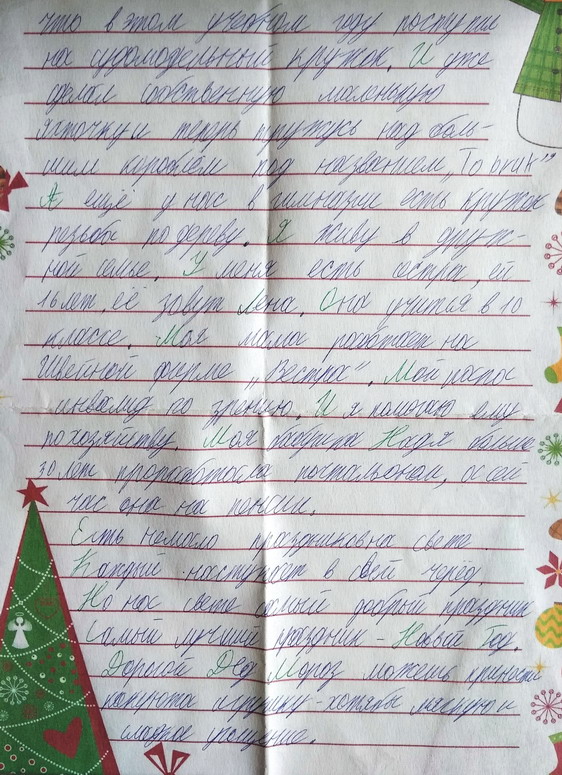 что в этом учебном году поступил
на судомодельный кружок. И уже
сделал собственную маленькую
яхточку и теперь тружусь над боль-
шим кораблём под названием
А ещё у нас в гимназии есть кружок
резьбы по дереву. Я живу в друж-
ной семье. У меня есть сестра, ей
16 лет, её зовут Лена. Она учится в 10
классе. Моя мама работает на
Швейной фирме „Вестра". Мой папа
инвалид по зрению. И я помогаю ему
по хозяйству. Моя бабушка Надя больше
30 лет проработала почтальоном, а сей
час она на пенсии.
Есть немало праздников на свете.
Каждый наступает в свой черёд.
Но на свете самый добрый праздник
Самый лучший праздник - Новый Год.
Дорогой Дед Мороз можешь принести
игрушку - хотябы мягкую и
сладкое угощение.